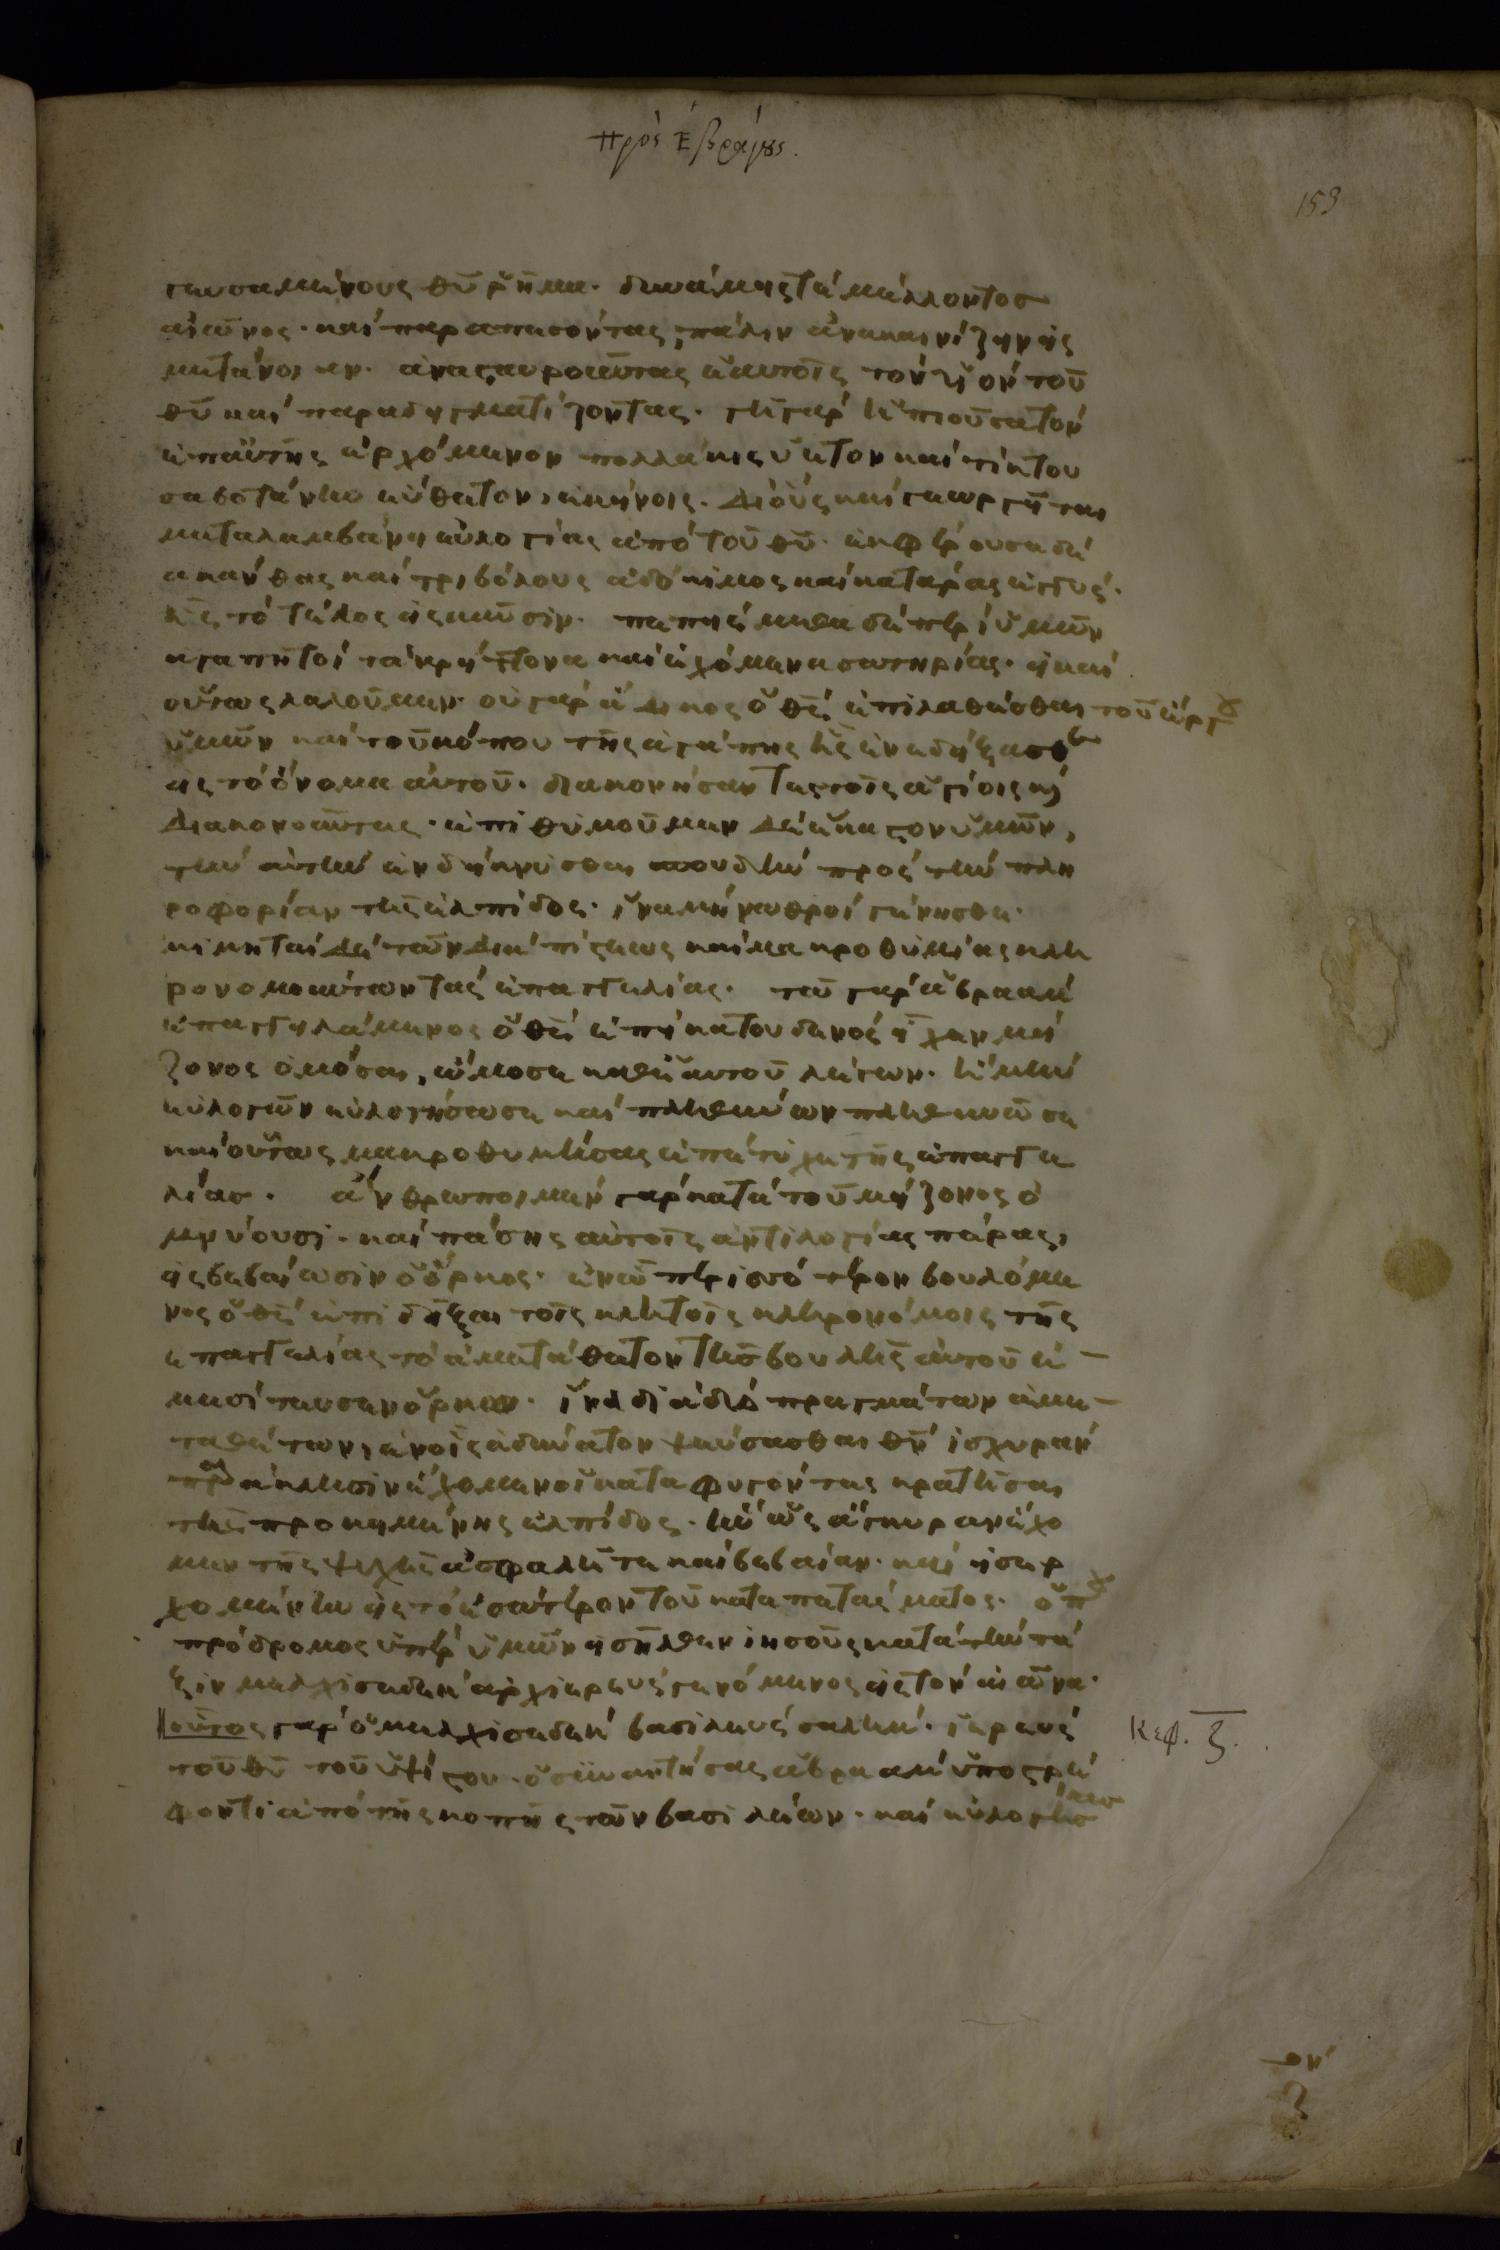 Πρὸς Ἑβραίους.
153
γευσαμένους θῦ ῥῆμα· δυνάμεις τὲ μέλλοντος
αἰῶνος· καὶ παραπεσόντας, πάλιν ἀνακαινίζειν εἰς
μετάνοιαν· ἀνασταυροῦντας ἑαυτοῖς τὸν υἱὸν τοῦ
θῦ καὶ παραδειγματίζοντας· γῆ γὰρ ἡ πιοῦσα τὸν
ἐπ αὐτῆς ἐρχόμενον πολλάκις ὑετὸν καὶ τίκτου
σα βοτάνην εὔθετον, ἐκείνοις· δι οὓς καὶ γεωργεῖται
μεταλαμβάνει εὐλογίας ἀπὸ τοῦ θῦ· ἐκφέρουσα δὲ
ἀκάνθας καὶ τριβόλους ἀδόκιμος καὶ κατάρας ἐγγύς·
ἧς τὸ τέλος εἰς καῦσιν· πεπείσμεθα δὲ περὶ ὑμῶν
ἀγαπητοὶ τὰ κρείττονα καὶ ἐχόμενα σωτηρίας· εἰ καὶ
οὕτως λαλοῦμεν· οὐ γὰρ ἄδικος ὁ θς ἐπιλαθέσθαι τοῦ ἔργου
ὑμῶν καὶ τοῦ κόπου τῆς ἀγάπης ἧς ἐνεδείξασθε
εἰς τὸ ὄνομα αὐτοῦ· διακονήσαντες τοῖς ἁγίοις καὶ
διακονοῦντες· ἐπιθυμοῦμεν δὲ ἕκαστον ὑμῶν,
τὴν αὐτὴν ἐνδείκνυσθαι σπουδὴν πρὸς τὴν πλη
ροφορίαν τῆς ἐλπίδος· ἵνα μὴ νωθροὶ γένησθε·
μιμηταὶ δὲ τῶν διὰ πίστεως καὶ μακροθυμίας κλη
ρονομούντων τὰς ἐπαγγελίας· τῶ γὰρ ἁβραὰμ
ἐπαγγειλάμενος ὁ θς ἐπεὶ κατ οὐδενὸς εἶχεν μεί
ζονος ὀμόσαι, ὤμοσε καθ ἑαυτοῦ λέγων· ἦ μὴν
εὐλογῶν εὐλογήσω σε καὶ πληθύνων πληθυνῶ σε
καὶ οὕτως μακροθυμήσας ἐπέτυχε τῆς ἐπαγγε
λίας· ἄνθρωποι μὲν γὰρ κατὰ τοῦ μείζονος ὀ
μνύουσι· καὶ πάσης αὐτοῖς ἀντιλογίας πέρας,
εἰς βεβαίωσιν ὁ ὅρκος· ἐν ὧ περισσότερον βουλόμε
νος ὁ θς ἐπιδεῖξαι τοῖς κλητοῖς κληρονόμοις τῆς
ἐπαγγελίας τὸ ἀμετάθετον τῆς βουλῆς αὐτοῦ ἐ
μεσίτευσεν ὅρκω· ἵνα διὰ δύο πραγμάτων ἀμε
ταθέτων, ἐν οἷς ἀδύνατον ψεύσασθαι θν ἰσχυρὰν
παράκλησιν ἔχομεν οἱ καταφυγόντες κρατῆσαι
τῆς προκειμένης ἐλπίδος· ἣν ὡς ἄγκυραν ἔχο
μεν τῆς ψυχῆς ἀσφαλῆ τε καὶ βεβαίαν· καὶ εἰσερ
χομένην εἰς τὸ ἐσώτερον τοῦ καταπετάσματος· ὅπου
πρόδρομος ὑπὲρ ὑμῶν εἰσῆλθεν ἰησοῦς κατὰ τὴν τά
ξιν μελχισεδὲκ ἀρχιερεὺς γενόμενος εἰς τὸν αἰῶνα·
οὗτος γὰρ ὁ μελχισεδὲκ βασιλεὺς σαλήμ· ἱερεὺς
Κεφ. ζ.
τοῦ θῦ τοῦ ὑψίστου· ὁ συναντήσας ἁβραὰμ ὑποστρέ
φοντι ἀπὸ τῆς κοπῆς τῶν βασιλέων· καὶ εὐλογήσας